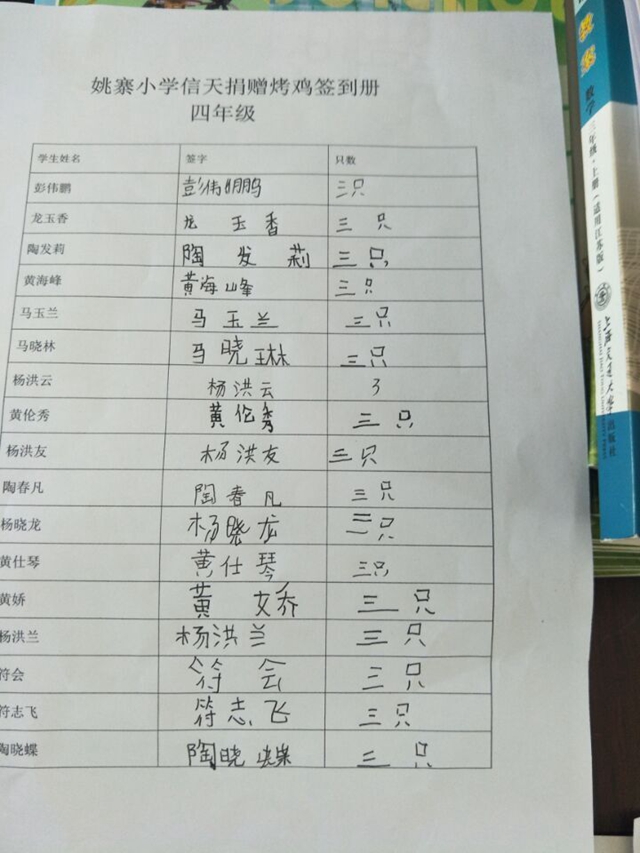 姚寨小学信天捐赠烤鸡签到册
四年级
学生姓名 签字 只数
彭伟鹏 彭伟鹏 三只
龙玉香 龙玉香 三只
陶发莉 陶发莉 三只
黄海峰 黄海峰 三只
马玉兰 马玉兰 三只
马晓林 马晓琳 三只
杨洪云 杨洪云 3
黄伦秀 黄伦秀 三只
杨洪友 杨洪友 三只
陶春凡 陶春凡 三只
杨晓龙 杨晓龙 三只
黄仕琴 黄仕琴 三只
黄娇 黄娇 三只
杨洪兰 杨洪兰 三只
符会 符会 三只
符志飞 符志飞 三只
陶晓蝶 陶晓蝶 三只
教案
数学 三年级·上册(适用江苏版)
上海交通大学出版社